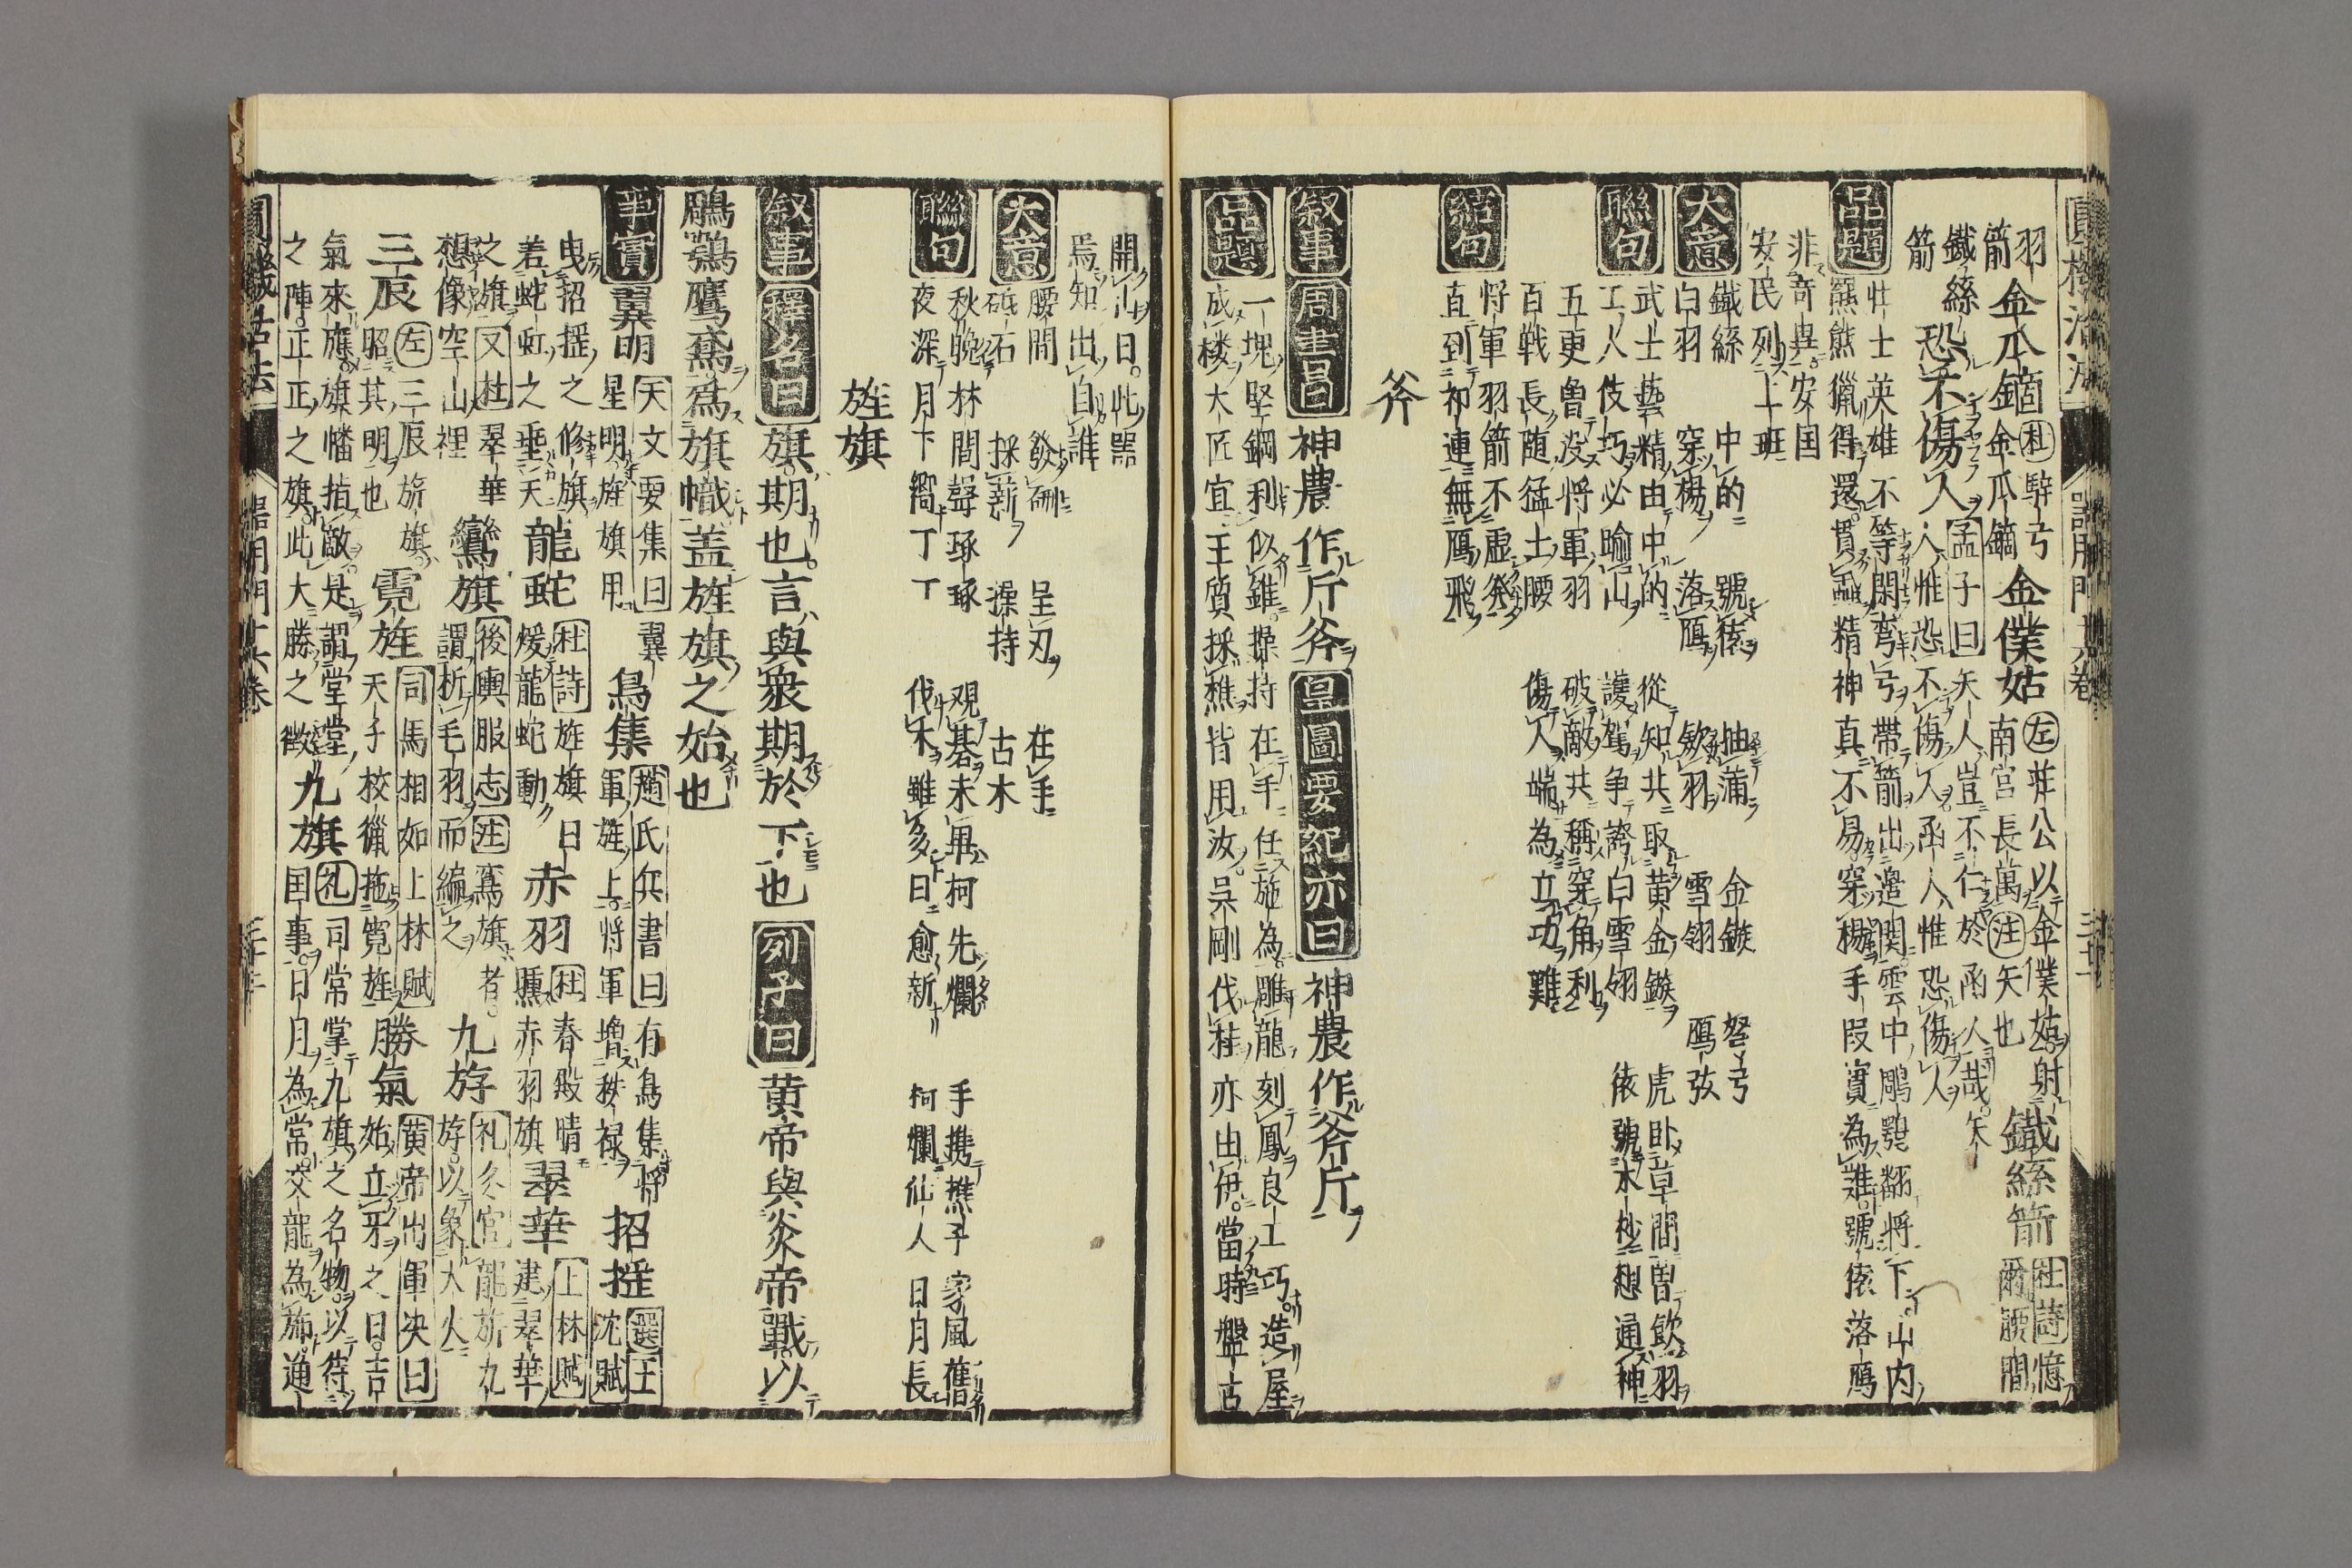 羽箭金瓜鏑杜騂弓金瓜鏑金僕姑左莊公以金僕姑射南宮長萬注矢也鐵絲箭杜詩憶爾腰間
鐵絲箭恐不傷人孟子曰矢人豈不仁於函人哉矢人惟恐不傷人函人惟恐傷人
品題
壮士英雄不等閑弯弓帶箭出邉関雲中鵰鶚翻将下山内
羆熊獵得還貫蝨精神真不易穿楊手叚實為難號猿落鴈
非奇異安国安民列上班
大意
鐵絲 中的 號猿 抽蒲 金鏃 弩弓
白羽 穿楊 落鴈 欽羽 雪翎 鴈弦
聯句
武士藝精由中的 從知共取黄金鏃 虎卧草間曽飲羽
工人伎巧必喻山 護駕争誇白雪翎 猿號木杪想通神
五更魯没将軍羽 破敵共稱穿角利
百戦長随猛士腰 傷人端為立功難
結句
将軍羽箭不虚發
直到神連無鴈飛
斧
叙事 周書曰神農作斤斧 皇圖要紀亦曰神農作斧斤
品題
一塊堅鋼利似錐操持在手任施為雕龍刻鳳良工巧造屋
成楼大匠宜王質採樵皆用汝呉剛伐桂亦由伊當時盤古
開山日此噐
焉知出自誰
大意
腰間 發硎 呈刃 在手
砥石 採薪 操持 古木
聯句
秋晩林間聲琢琢 观棊未畢柯先爛 手携樵子家風舊
夜深月下響丁丁 伐木雖多日愈新 柯爛仙人日月長
旌旗
叙事 釋名曰旗期也言與衆期於下也 列子曰黄帝與炎帝戰以
鵰鶚鷹鳶爲旗幟盖旌旗之始也
事實 翼明天文要集曰翼星明旌旗用鳥集趙氏兵書曰有鳥集将軍旌上将軍増秩禄招揺選王沈賦
曳招揺之修旗若蛇虹之垂天龍蛇杜詩旌旗日煖龍蛇動赤羽杜春殿晴曛赤羽旗翠華上林賦建翠華
之旗又杜翠華想像空山裡鸞旗後輿服志注鸞旗者謂析毛羽而編之九斿礼冬官龍旂九斿以象大火
三辰左三辰旂旗昭其明也霓旌司馬相如上林賦天子校獵拖霓旌勝氣黄帝出軍决曰始立牙之日吉
氣來應旗幡指敵是謂堂堂之陣正正之旗此大勝之徴九旗礼司常掌九旗之名物以待国事日月為常交龍為旂通